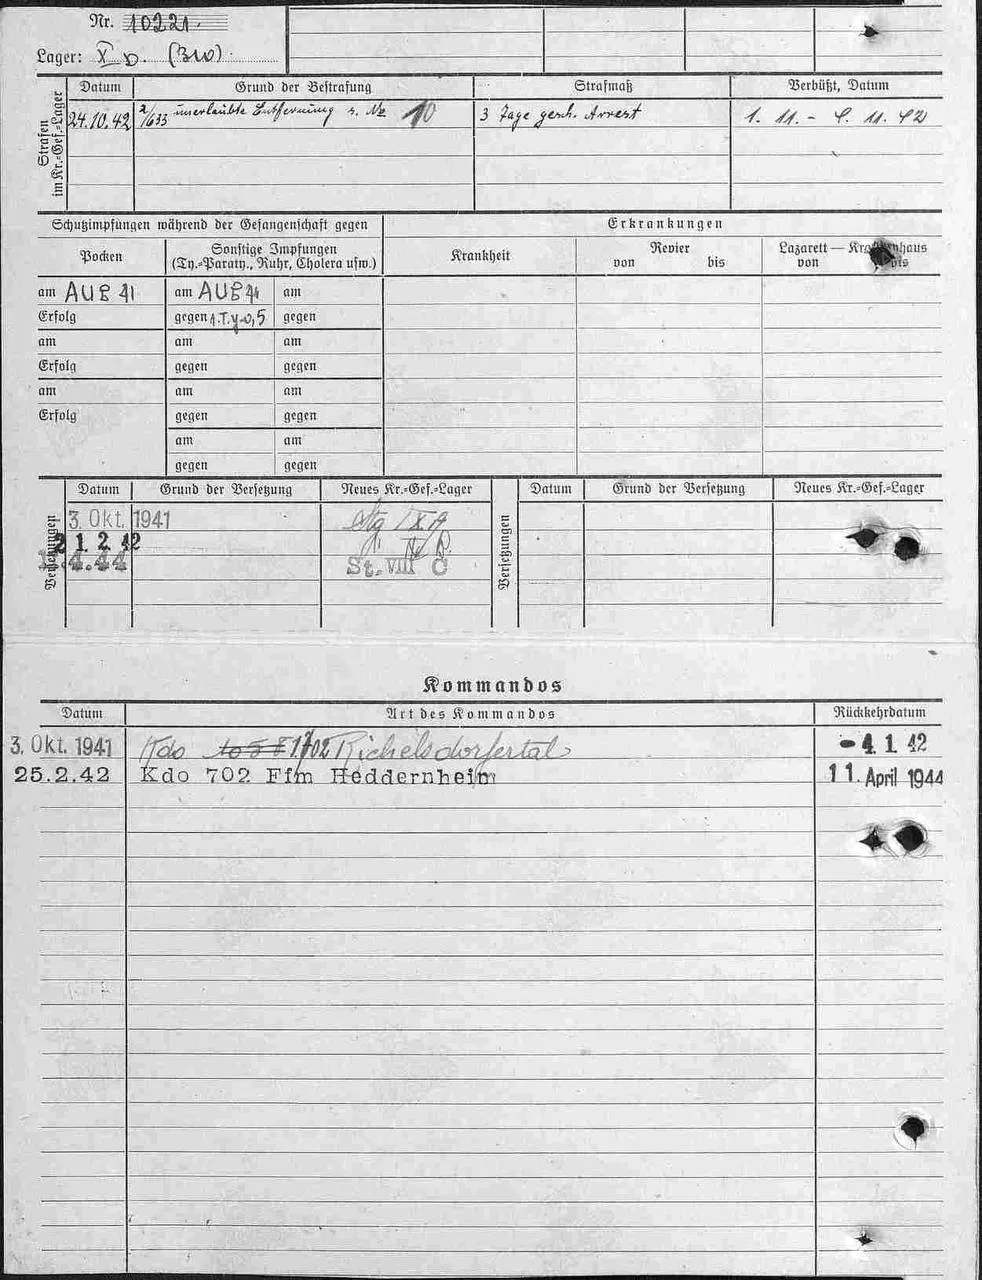 Nr. 10221.
Lager: X D. (310)
Strafen im Kr.=Gef.=Lager
Datum Grund der Bestrafung Strafmaß Verbüßt, Datum
24.10.42 2/633 unerlaubte Entfernung 10 3 Tage gesch. Arrest 1. 11. - 4. 11. 42
Schutzimpfungen während der Gefangenschaft gegen Erkrankungen
Pocken Sonstige Impfungen (Ty.=Paraty., Ruhr, Cholera usw.) Krankheit Revier von bis Lazarett — Krankenhaus von bis
am AUG 41 am AUG 41 am
Erfolg gegen 1.T.y-0,5 gegen
am am am
Erfolg gegen gegen
am am am
Erfolg gegen gegen
am am
gegen gegen
Versetzungen Datum Grund der Versetzung Neues Kr.=Gef.=Lager Versetzungen Datum Grund der Versetzung Neues Kr.=Gef.=Lager
3. Okt. 1941 Stg IX A
2 1. 2. 42
.4.44 St. VIII C
Kommandos
Datum Art des Kommandos Rückkehrdatum
3. Okt. 1941 Kdo 1702 Richelsdorfertal - 4. 1. 42
25.2.42 Kdo 702 Ffm Heddernheim 11. April 1944